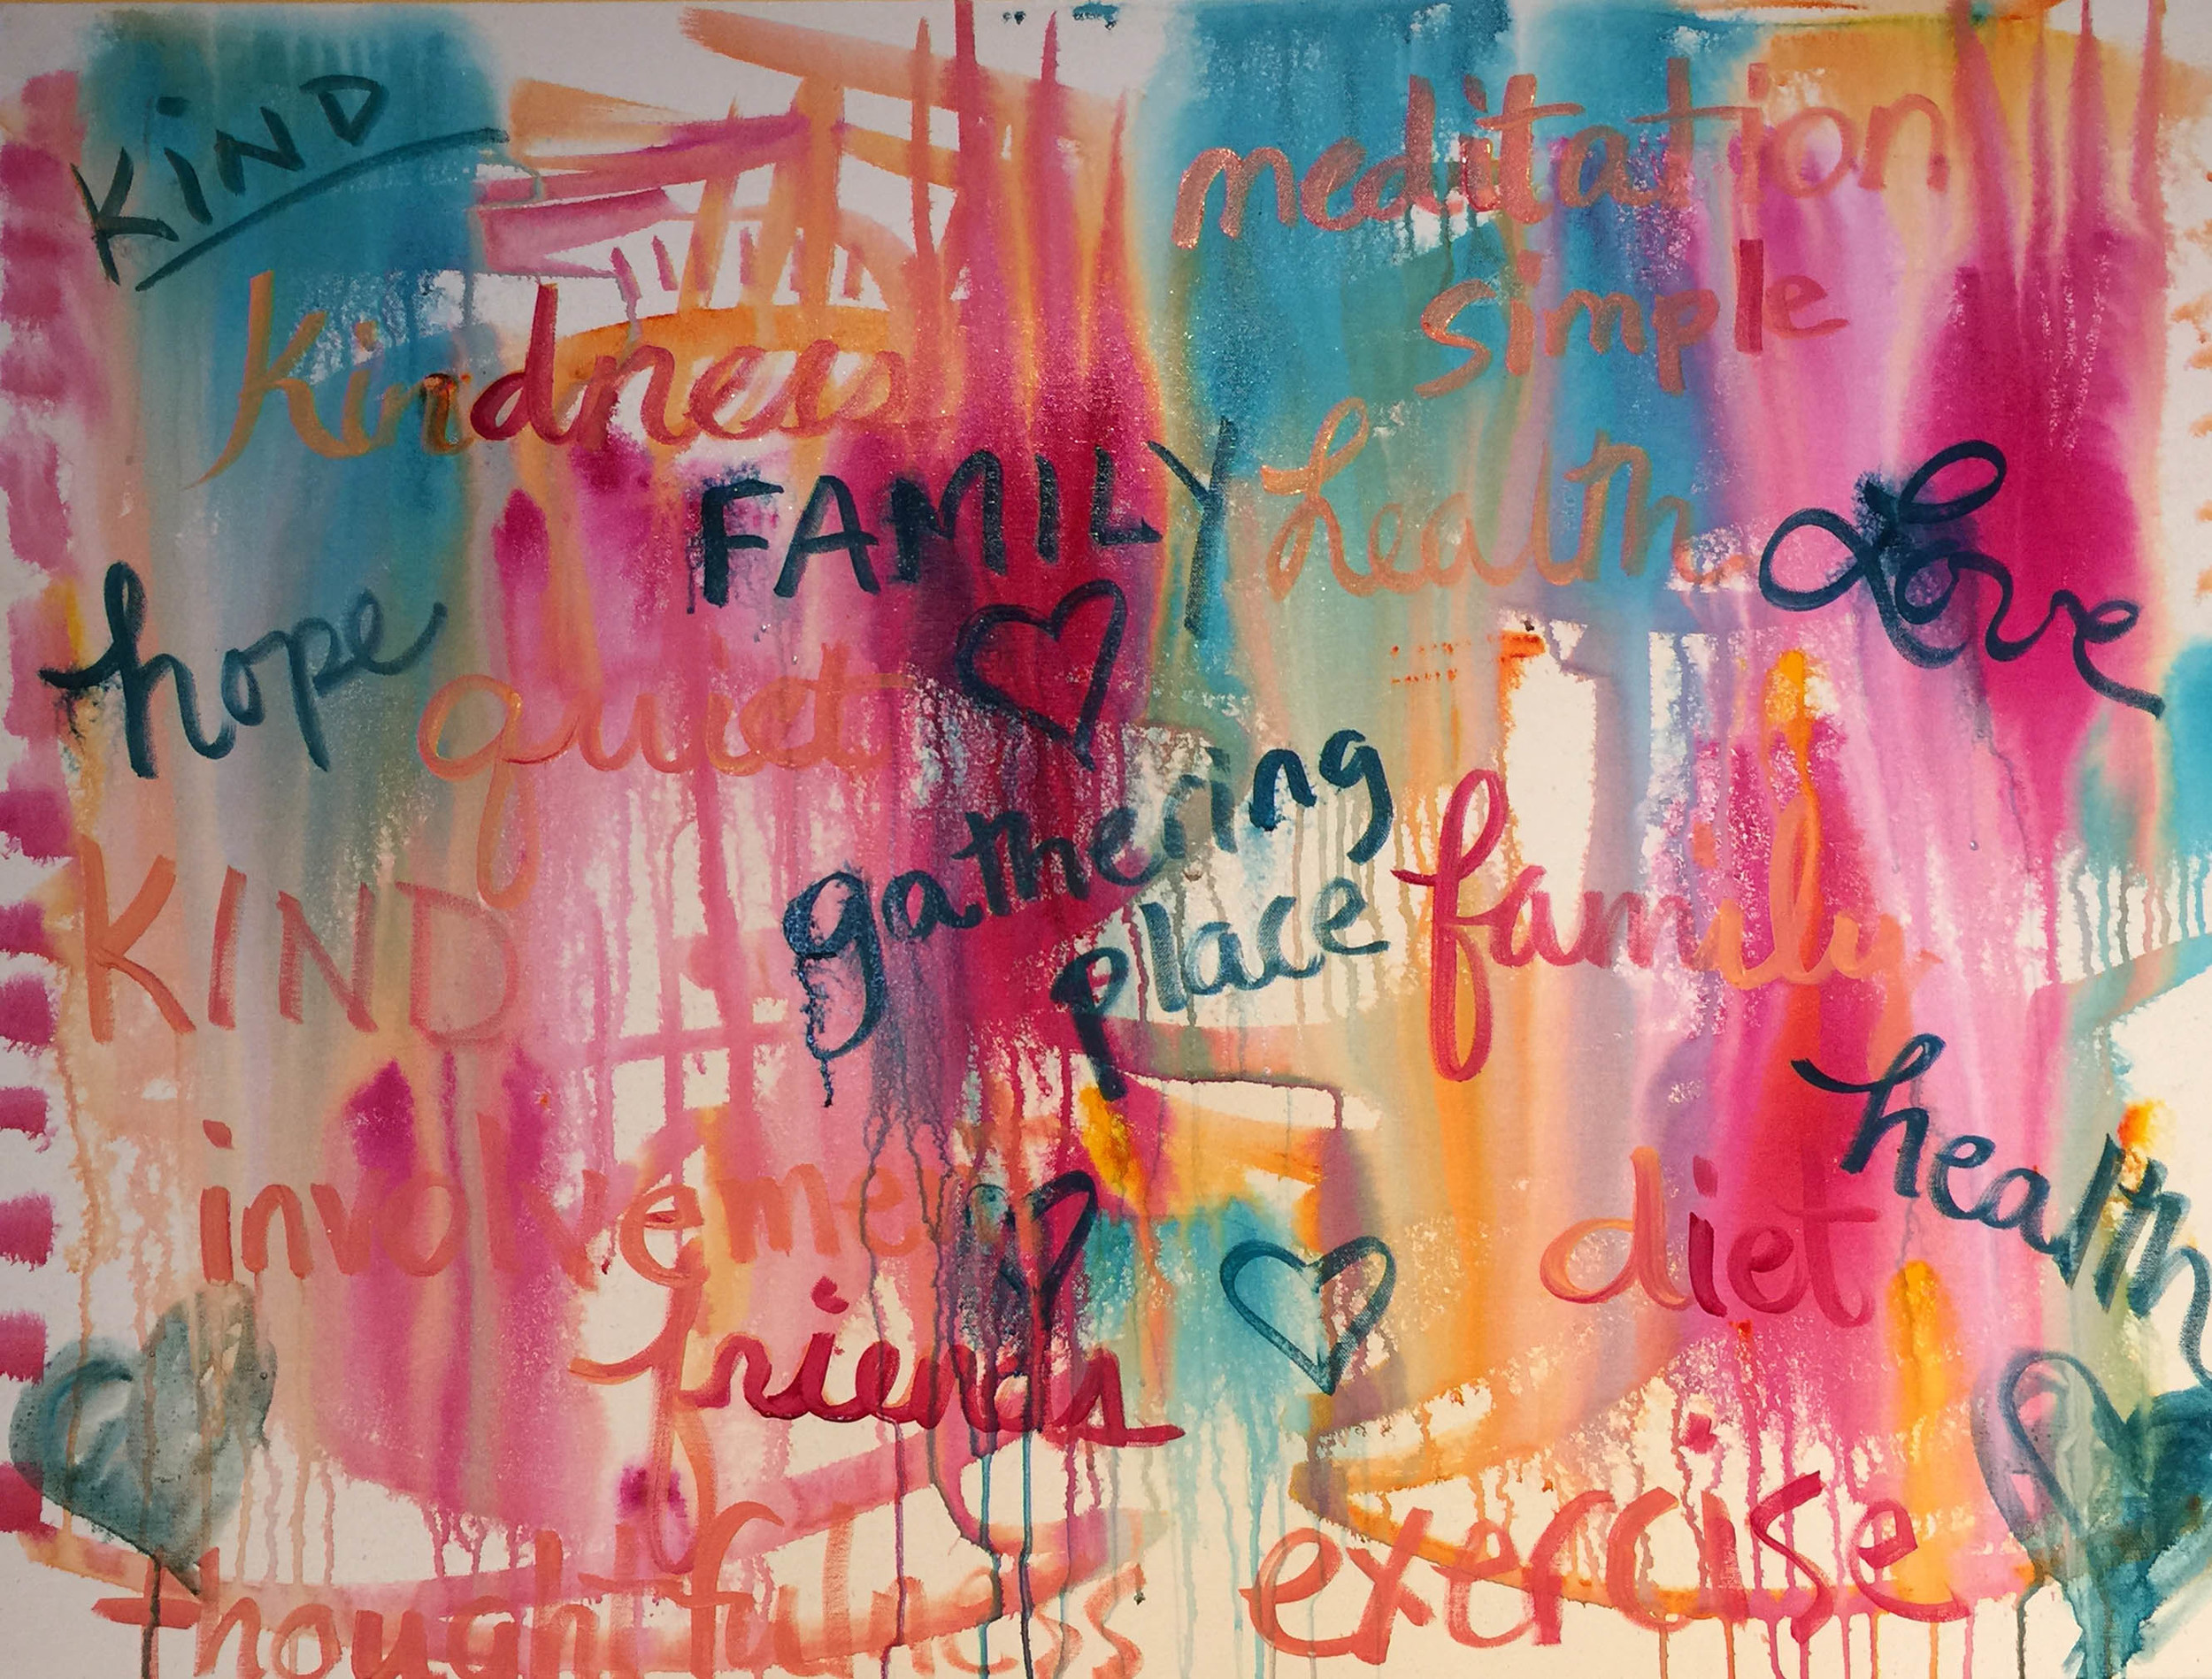 KiND
meditation
simple
kindness
FAMILY
health
Love
hope
quiet
gathering
place
family
KIND
health
involveme
diet
friends
exercise
thoughtfulness